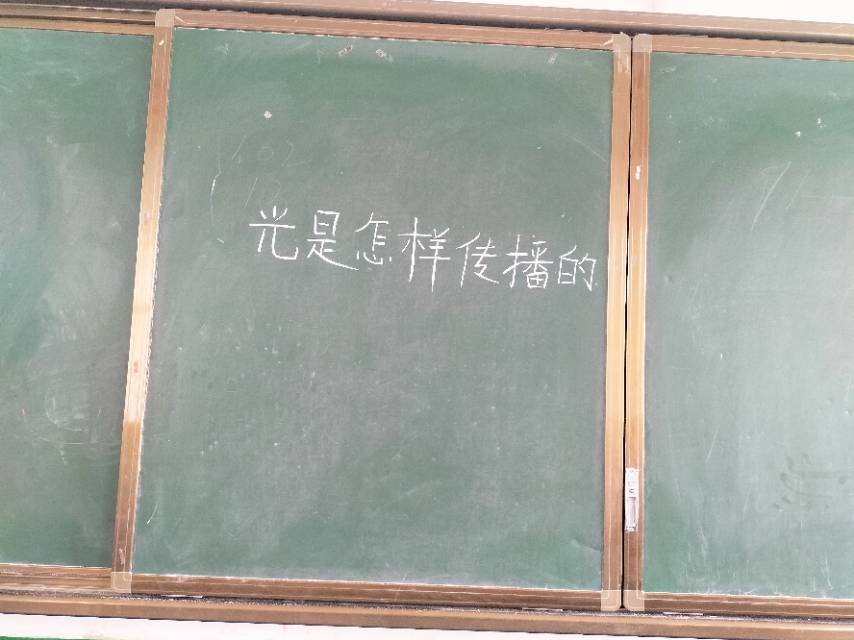 光是怎样传播的